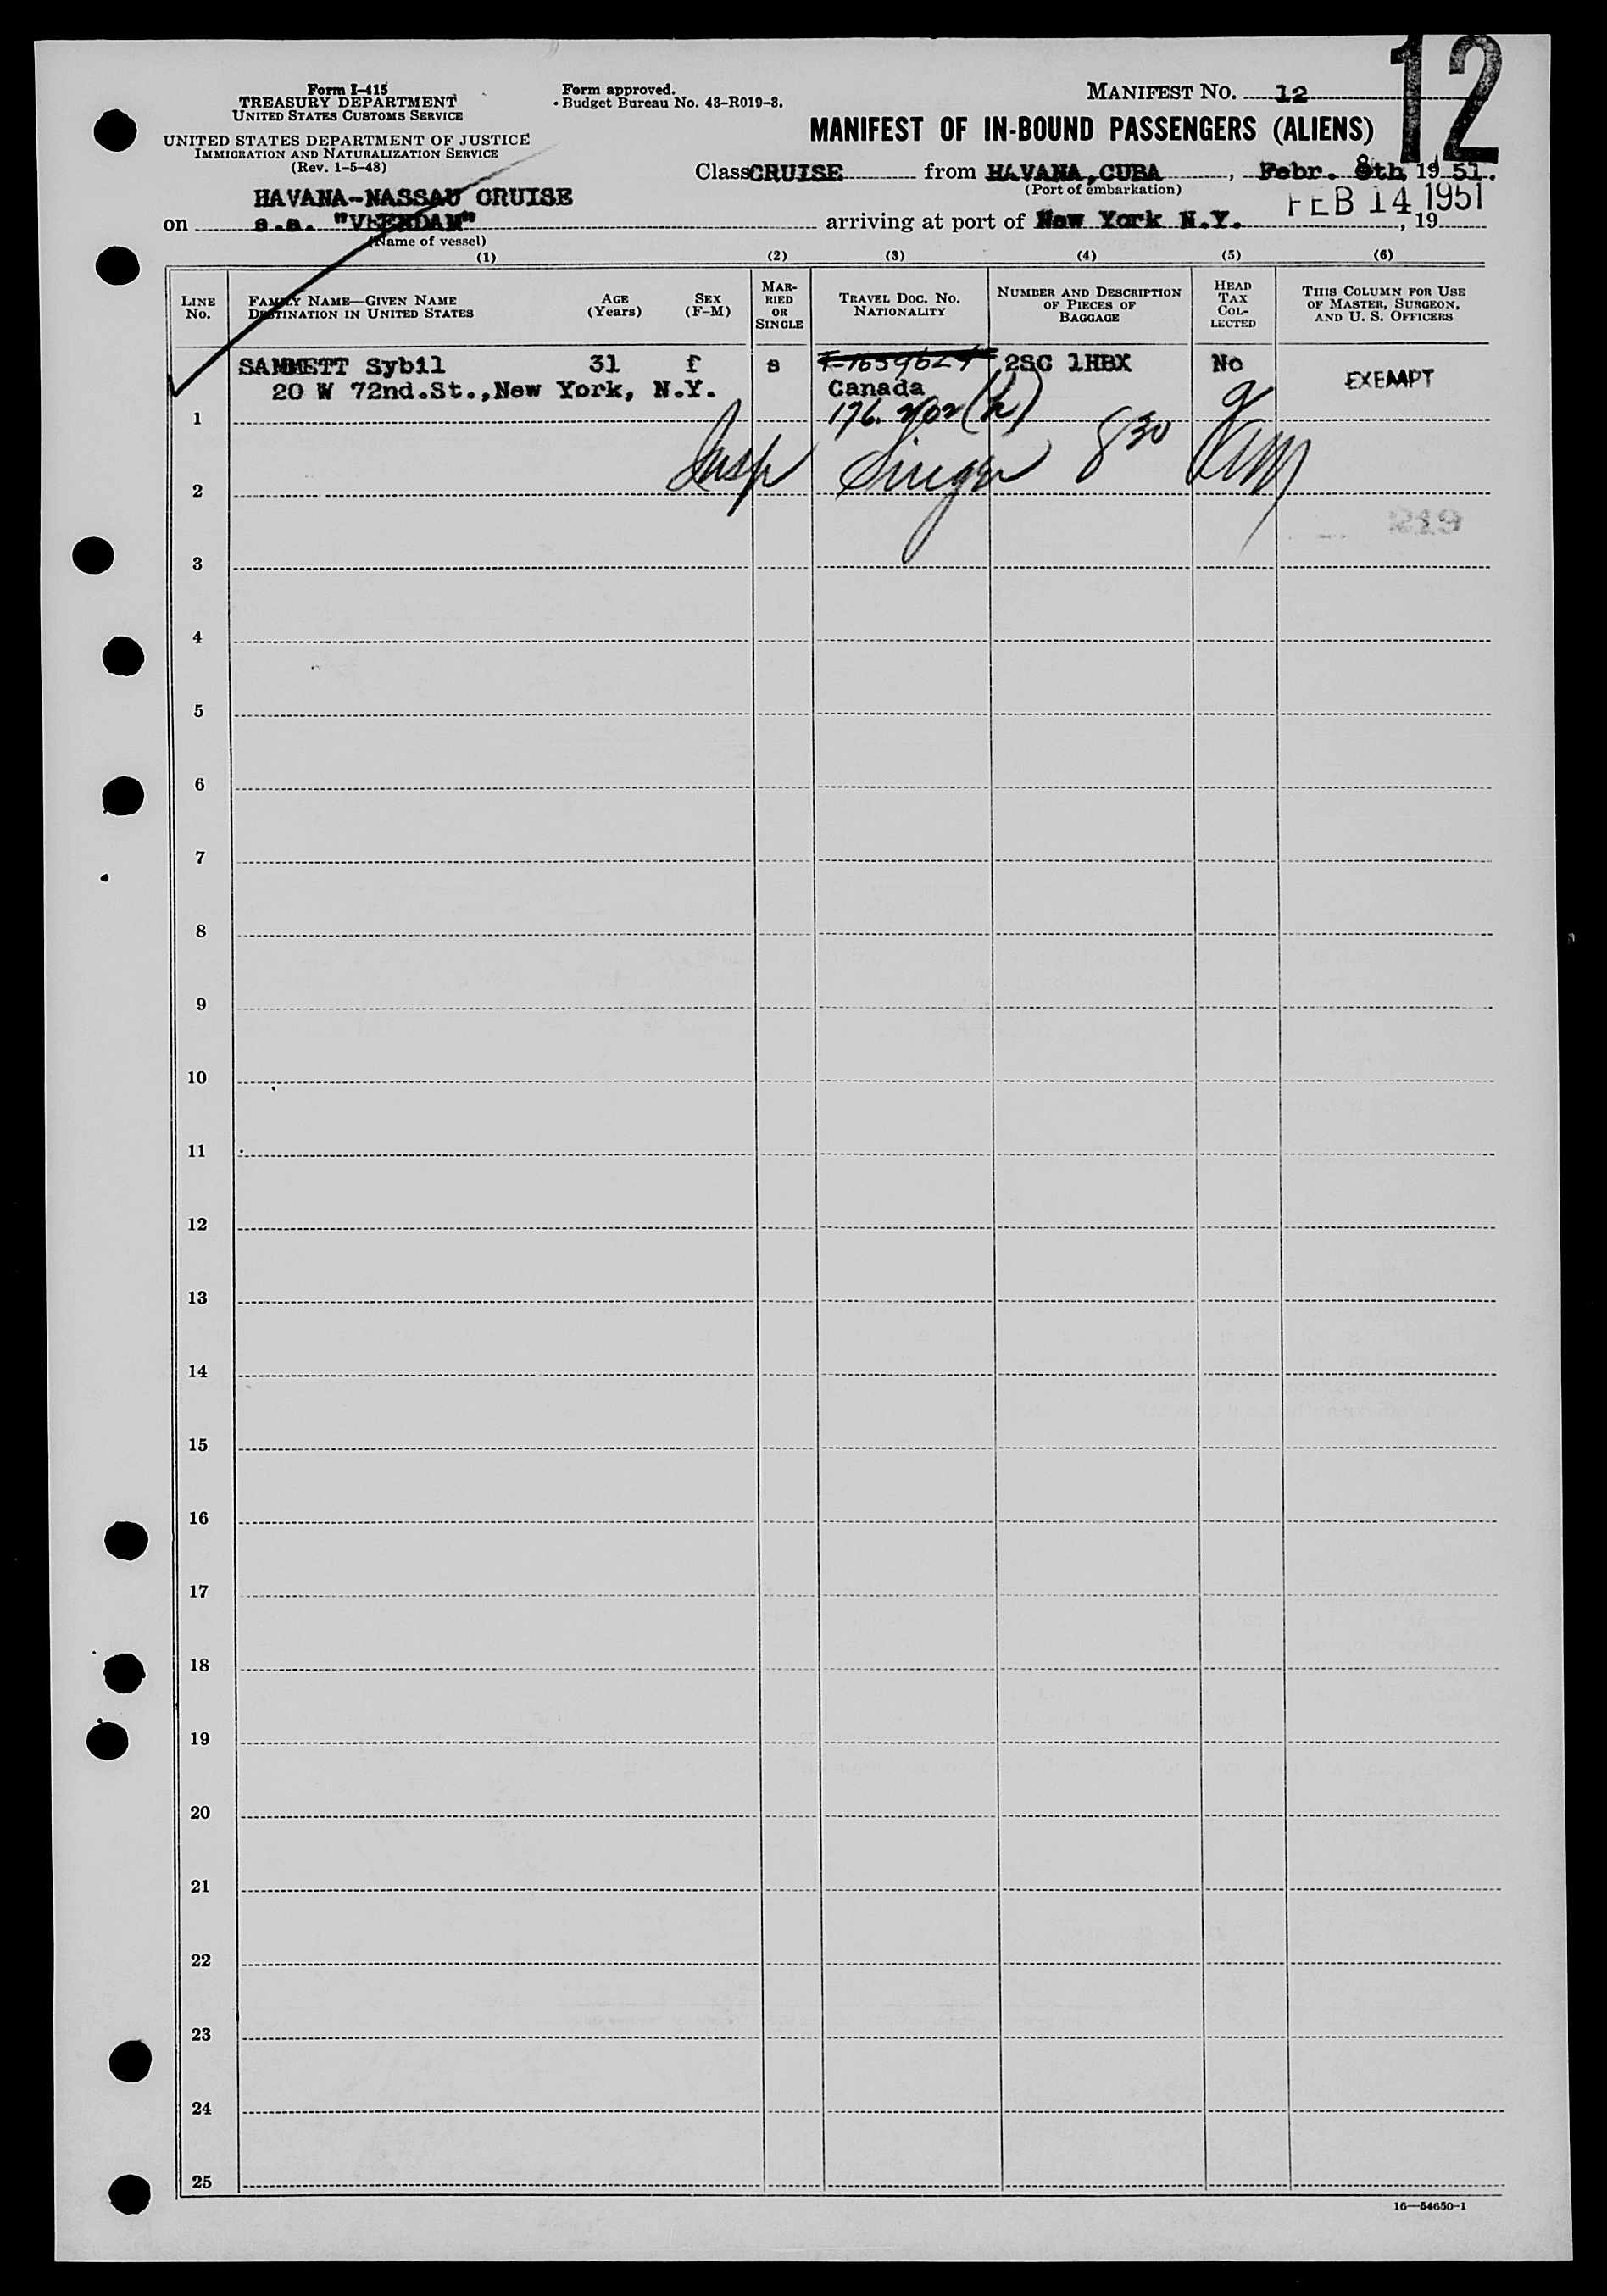 12
Form I-415
TREASURY DEPARTMENT
UNITED STATES CUSTOMS SERVICE
UNITED STATES DEPARTMENT OF JUSTICE
IMMIGRATION AND NATURALIZATION SERVICE
(Rev. 1-5-48)
Form approved.
Budget Bureau No. 43-R019-3.
MANIFEST NO. 12
MANIFEST OF IN-BOUND PASSENGERS (ALIENS)
Class CRUISE from HAVANA, CUBA, Febr. 8th, 1951.
(Port of embarkation)
HAVANA-NASSAU CRUISE
on s.s. "VEENDAM" arriving at port of New York N.Y. FEB 14 1951, 19
(Name of vessel)
(1) (2) (3) (4) (5) (6)
LINE No.
FAMILY NAME—GIVEN NAME
DESTINATION IN UNITED STATES
AGE (Years)
SEX (F-M)
MARRIED OR SINGLE
TRAVEL DOC. NO. NATIONALITY
NUMBER AND DESCRIPTION OF PIECES OF BAGGAGE
HEAD TAX COLLECTED
THIS COLUMN FOR USE OF MASTER, SURGEON, AND U. S. OFFICERS
SAMMETT Sybil 31 f s 2SC 1HBX No EXEMPT
20 W 72nd.St.,New York, N.Y. Canada
1
Insp Singer 8 30
2
219
3
4
5
6
7
8
9
10
11
12
13
14
15
16
17
18
19
20
21
22
23
24
25
16—54650-1